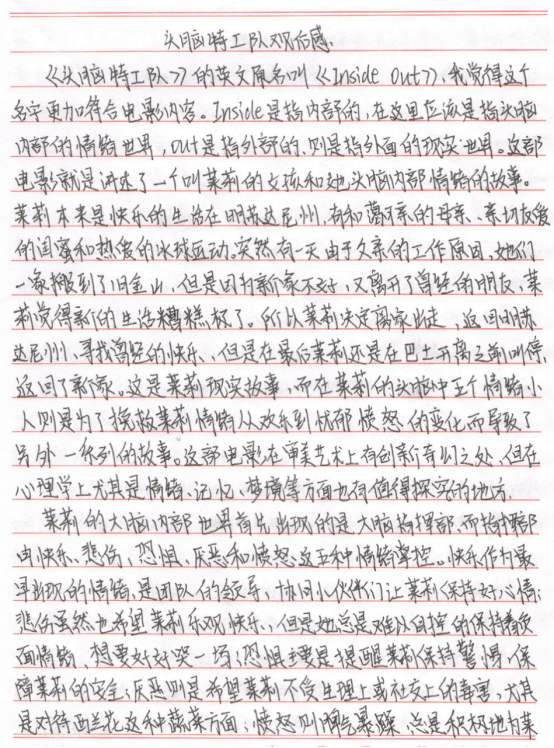 头脑特工队观后感.
《头脑特工队》的英文原名叫《Inside Out》,我觉得这个
名字更加符合电影内容。Inside是指内部的,在这里应该是指头脑
内部的情绪世界,out是指外部的、则是指外面的现实世界。这部
电影就是讲述了一个叫莱莉的女孩和她头脑内部情绪的故事。
莱莉本来是快乐的生活在明苏达尼州,有和蔼可亲的母亲、亲切友爱
的闺蜜和热爱的冰球运动。突然有一天由于父亲的工作原因,她们
一家搬到了旧金山,但是因为新家不好,又离开了曾经的朋友,莱
莉觉得新的生活糟糕极了。所以莱莉决定离家出走,返回明苏
达尼州、寻找曾经的快乐、但是在最后莱莉还是在巴士开离之前叫停,
返回了新家。这是莱莉现实故事,而在莱莉的头脑中五个情绪小
人则是为了挽救莱莉情绪从欢乐到忧郁愤怒的变化而导致了
另外一系列的故事。这部电影在审美艺术上有创新奇幻之处,但在
心理学上尤其是情绪、记忆、梦境等方面也有值得探究的地方.
莱莉的大脑内部世界首先出现的是大脑指挥部,而指挥部
由快乐、悲伤、恐惧、厌恶和愤怒这五种情绪掌控。快乐作为最
早出现的情绪,是团队的领导、协同小伙伴们让莱莉保持好心情;
悲伤虽然也希望莱莉乐观快乐、但是她总是难以自控的保持着负
面情绪,想要好好哭一场;恐惧主要是提醒莱莉保持警惕,保
障莱莉的安全;厌恶则是希望莱莉不受生理上或社交上的毒害,尤其
是对待西兰花这种蔬菜方面;愤怒则脾气暴躁,总是积极地为莱